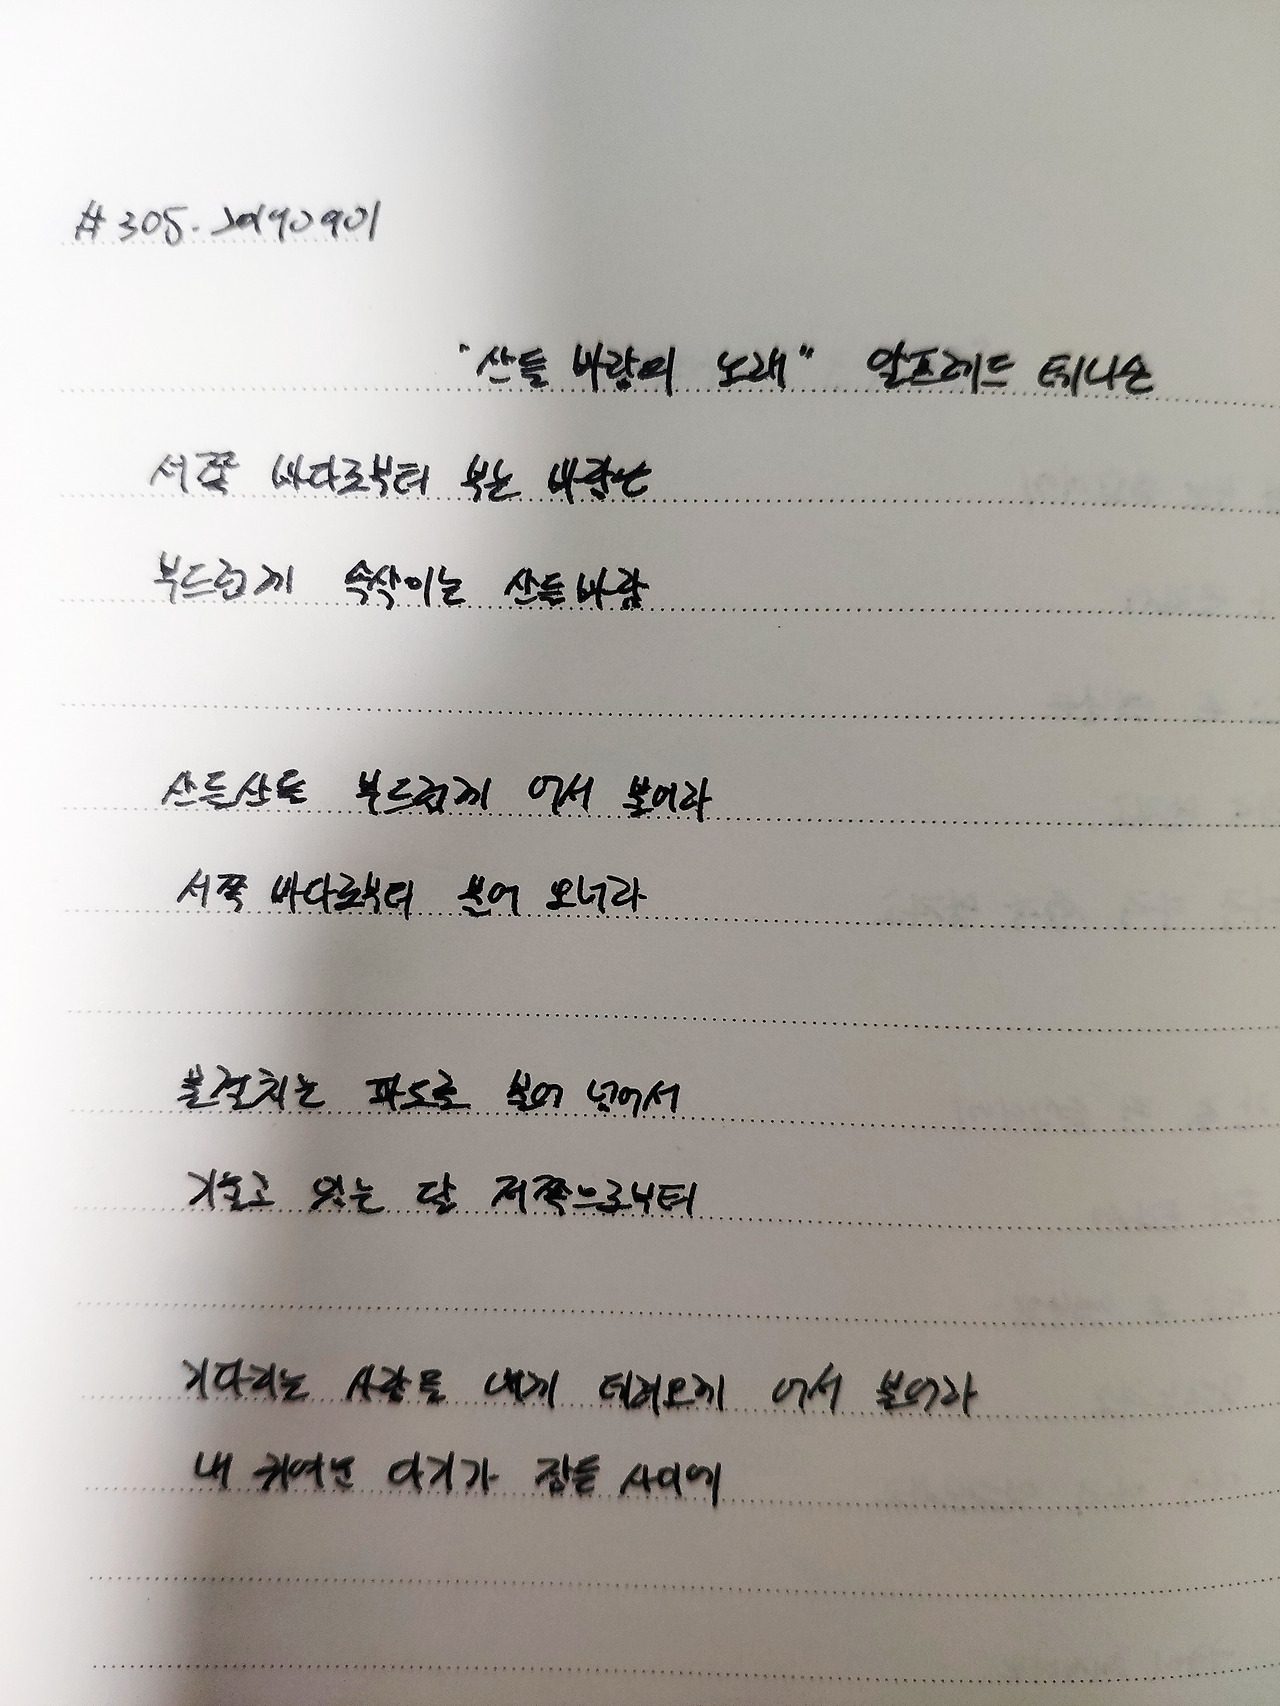 #305. 20190901
"산들 바람의 노래" 알프레드 테니슨
서쪽 바다로부터 부는 바람은
부드럽게 속삭이는 산들바람
산들산들 부드럽게 어서 불어라
서쪽 바다로부터 불어 오너라
물결치는 파도를 불어 넘어서
기울고 있는 달 저쪽으로부터
기다리는 사람을 내게 데려오게 어서 불어라
내 귀여운 아기가 잠든 사이에